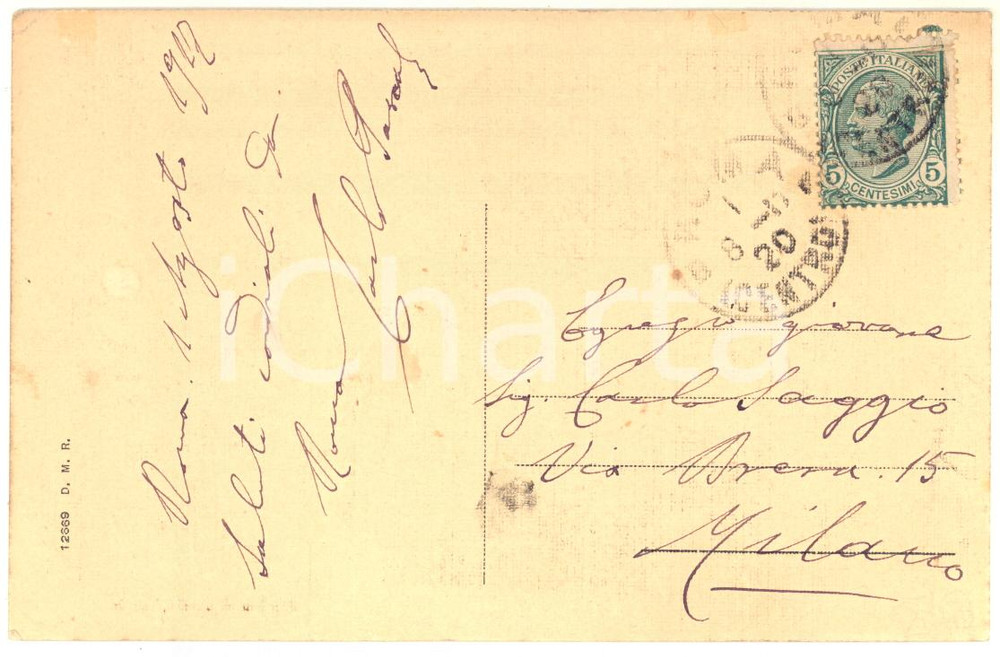 Roma. 1 Agosto 1912
Saluti cordiali da
Roma
Carlo
POSTE ITALIANE
5 CENTESIMI 5
ROMA
1 8
20
CENTRO
Egregio giovane
Sig. Carlo Saggio
Via Brera. 15
Milano
12869 D. M. R.
iCharta